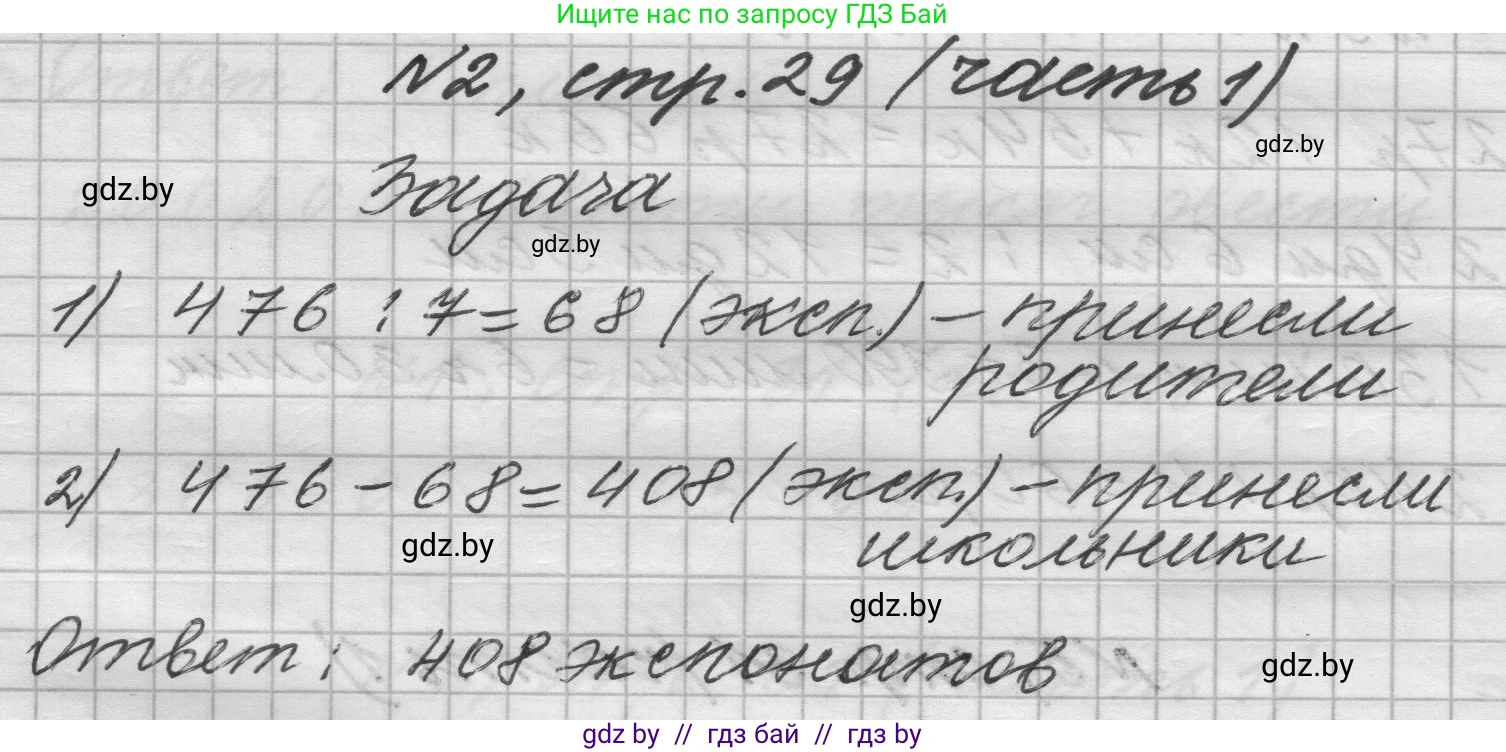 Ищите нас по запросу ГДЗ Бай
№2, стр. 29 (часть 1)
gdz.by
gdz.by
Задача
gdz.by
1) 476 : 7 = 68 (эксп.) – принесли
родители
2) 476 – 68 = 408 (эксп.) – принесли
школьники
gdz.by
gdz.by
Ответ: 408 экспонатов
gdz.by
gdz.by // гдз бай // гдз by